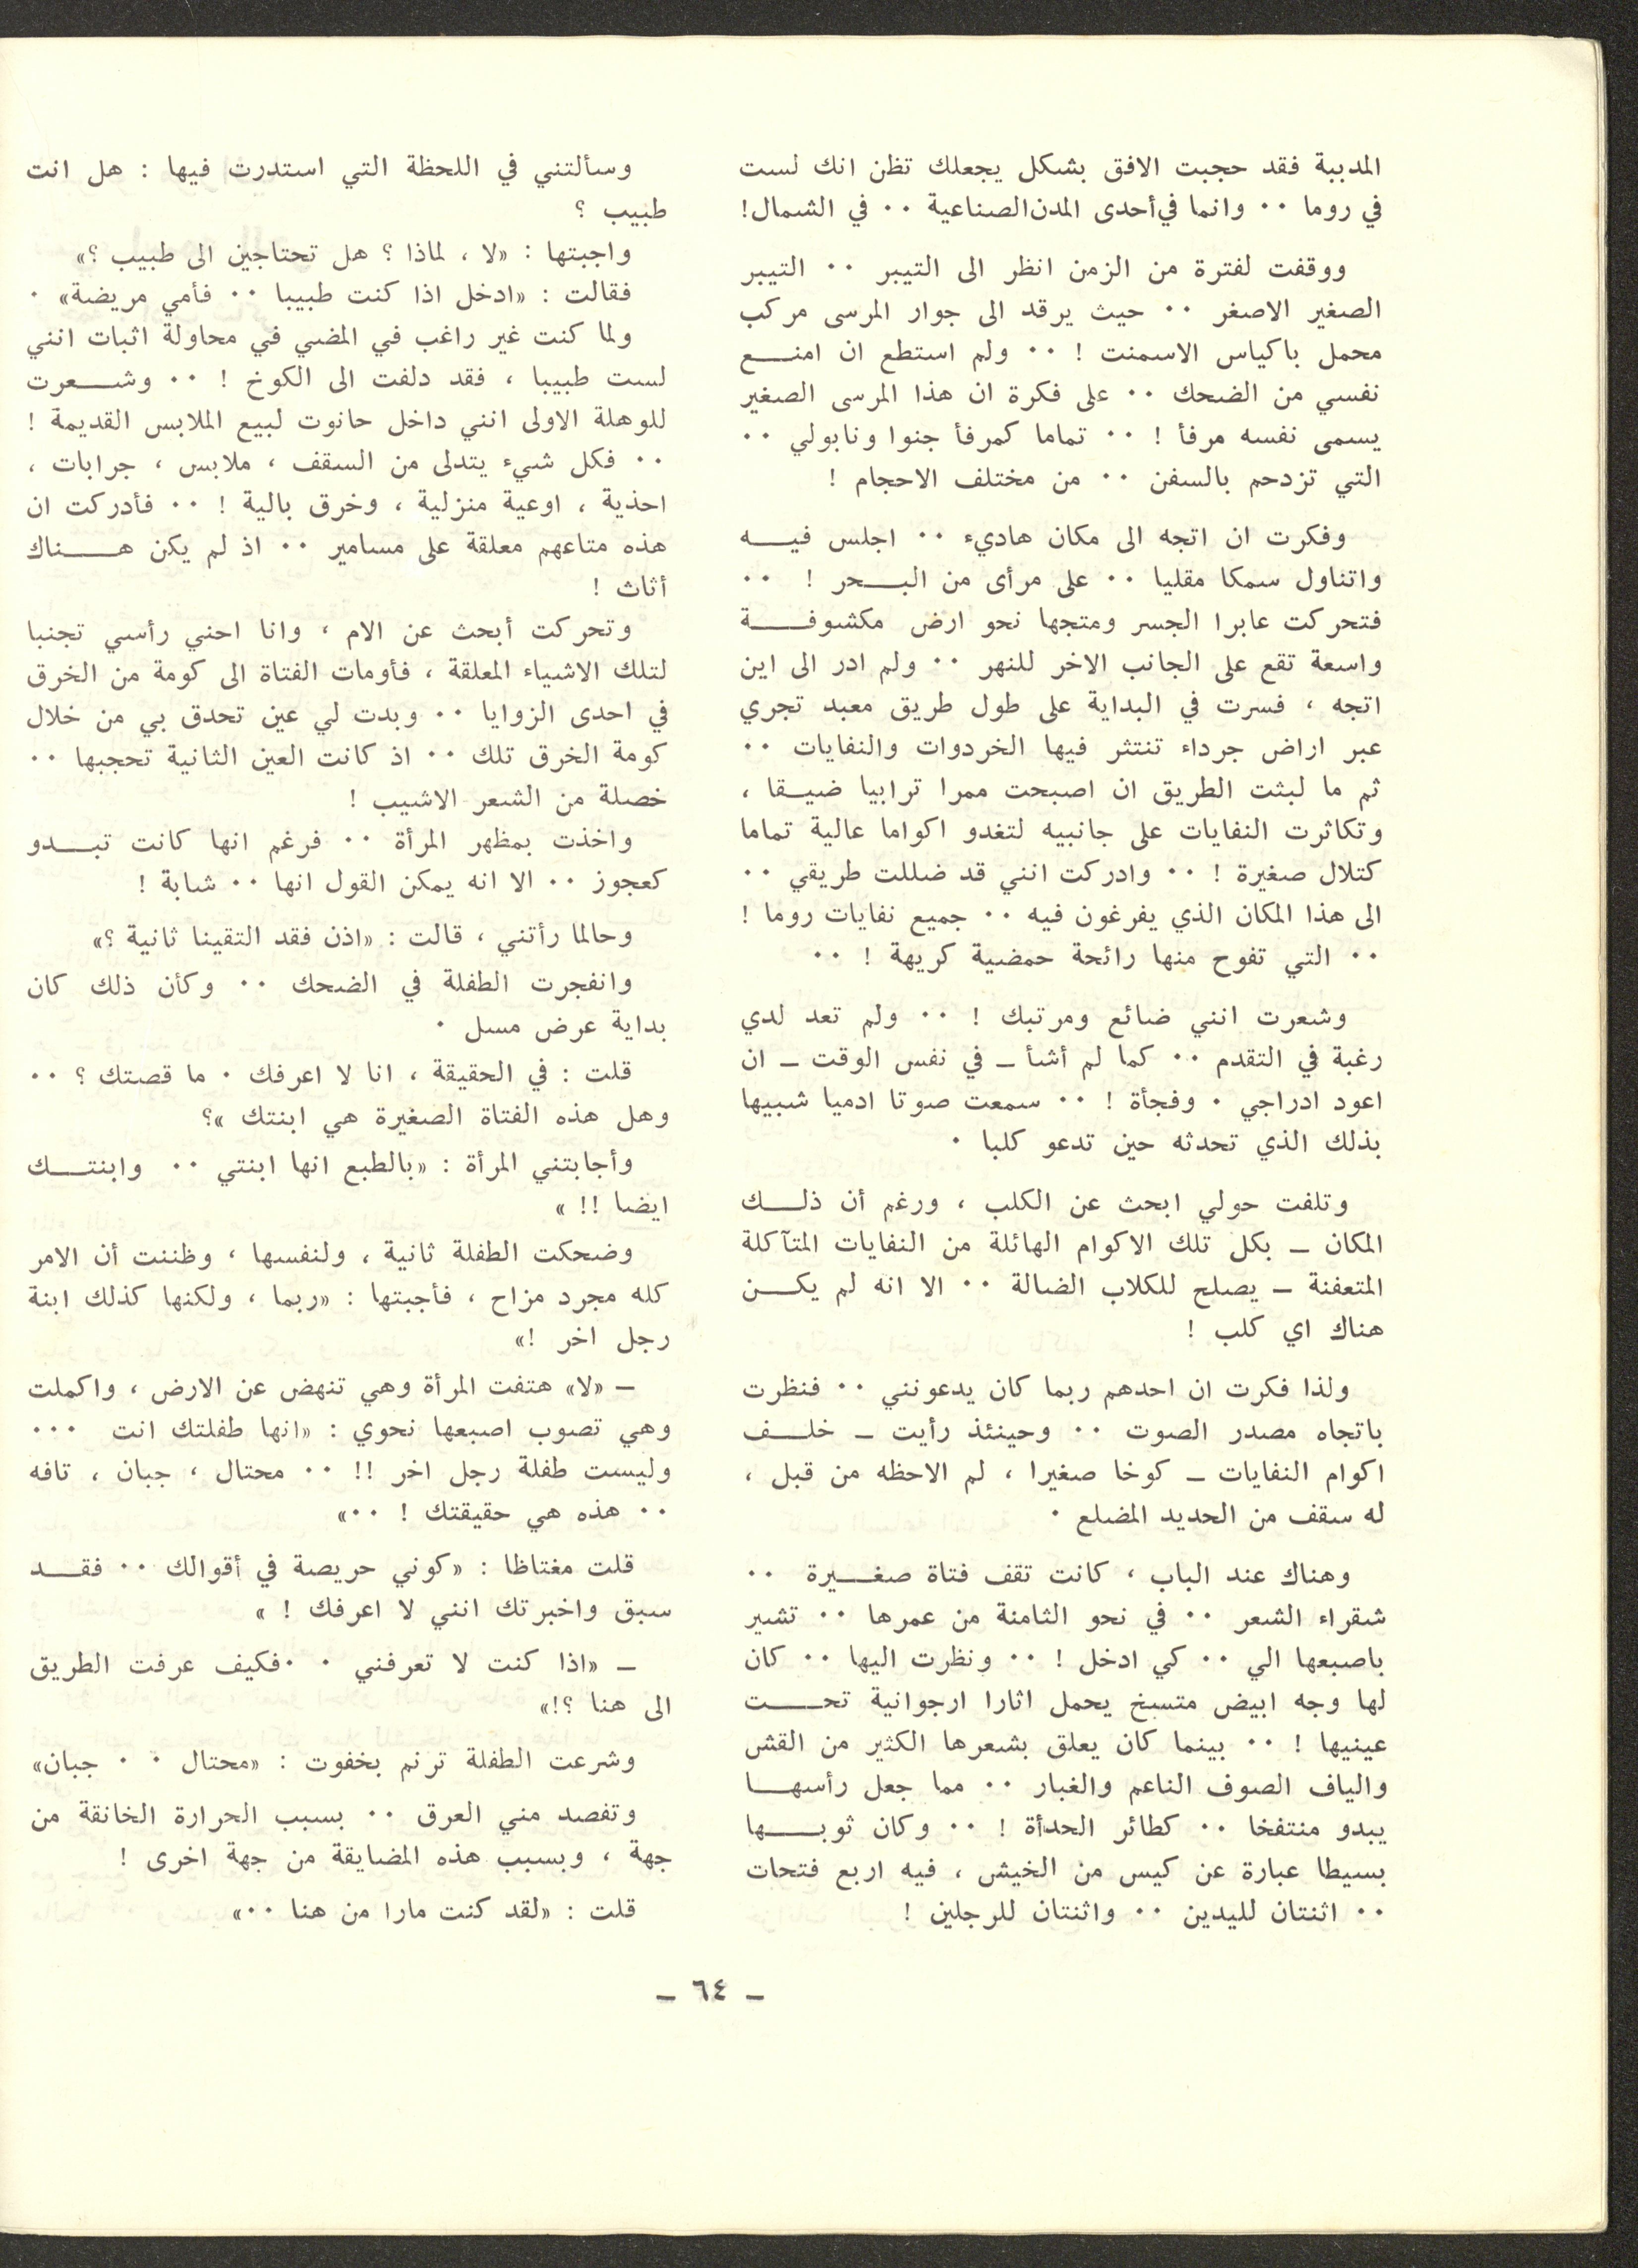 المدببة فقد حجبت الافق بشكل يجعلك تظن انك لست
في روما ٠٠ وانما في أحدى المدن الصناعية ٠٠ في الشمال!
ووقفت لفترة من الزمن انظر الى التيبر ٠٠ التيبر
الصغير الاصغر ٠٠ حيث يرقد الى جوار المرسى مركب
محمل باكياس الاسمنت ! ٠٠ ولم استطع ان امنـــع
نفسي من الضحك ٠٠ على فكرة ان هذا المرسى الصغير
يسمى نفسه مرفأ ! ٠٠ تماما كمرفأ جنوا ونابولي ٠٠
التي تزدحم بالسفن ٠٠ من مختلف الاحجام !
وفكرت ان اتجه الى مكان هاديء ٠٠ اجلس فيـــه
واتناول سمكا مقليا ٠٠ على مرأى من البـــحر ! ٠٠
فتحركت عابرا الجسر ومتجها نحو ارض مكشوفـــة
واسعة تقع على الجانب الاخر للنهر ٠٠ ولم ادر الى اين
اتجه ، فسرت في البداية على طول طريق معبد تجري
عبر اراض جرداء تنتثر فيها الخردوات والنفايات ٠٠
ثم ما لبثت الطريق ان اصبحت ممرا ترابيا ضيـــقا ،
وتكاثرت النفايات على جانبيه لتغدو اكواما عالية تماما
كتلال صغيرة ! ٠٠ وادركت انني قد ضللت طريقي ٠٠
الى هذا المكان الذي يفرغون فيه ٠٠ جميع نفايات روما !
٠٠ التي تفوح منها رائحة حمضية كريهة ! ٠٠
وشعرت انني ضائع ومرتبك ! ٠٠ ولم تعد لدي
رغبة في التقدم ٠٠ كما لم أشأ ـ في نفس الوقت ـ ان
اعود ادراجي ٠ وفجأة ! ٠٠ سمعت صوتا ادميا شبيها
بذلك الذي تحدثه حين تدعو كلبا ٠
وتلفت حولي ابحث عن الكلب ، ورغم أن ذلـــك
المكان ـ بكل تلك الاكوام الهائلة من النفايات المتآكلة
المتعفنة ـ يصلح للكلاب الضالة ٠٠ الا انه لم يكـــن
هناك اي كلب !
ولذا فكرت ان احدهم ربما كان يدعونني ٠٠ فنظرت
باتجاه مصدر الصوت ٠٠ وحينئذ رأيت ـ خلـــف
اكوام النفايات ـ كوخا صغيرا ، لم الاحظه من قبل ،
له سقف من الحديد المضلع ٠
وهناك عند الباب ، كانت تقف فتاة صغـــيرة ٠٠
شقراء الشعر ٠٠ في نحو الثامنة من عمرها ٠٠ تشير
باصبعها الي ٠٠ كي ادخل ! ٠٠ ونظرت اليها ٠٠ كان
لها وجه ابيض متسخ يحمل اثارا ارجوانية تحـــت
عينيها ! ٠٠ بينما كان يعلق بشعرها الكثير من القش
والياف الصوف الناعم والغبار ٠٠ مما جعل رأسهـــا
يبدو منتفخا ٠٠ كطائر الحدأة ! ٠٠ وكان ثوبـــها
بسيطا عبارة عن كيس من الخيش ، فيه اربع فتحات
٠٠ اثنتان لليدين ٠٠ واثنتان للرجلين !
وسألتني في اللحظة التي استدرت فيها : هل انت
طبيب ؟
واجبتها : «لا ، لماذا ؟ هل تحتاجين الى طبيب ؟»
فقالت : «ادخل اذا كنت طبيبا ٠٠ فأمي مريضة» ٠
ولما كنت غير راغب في المضي في محاولة اثبات انني
لست طبيبا ، فقد دلفت الى الكوخ ! ٠٠ وشـــعرت
للوهلة الاولى انني داخل حانوت لبيع الملابس القديمة !
٠٠ فكل شيء يتدلى من السقف ، ملابس ، جرابات ،
احذية ، اوعية منزلية ، وخرق بالية ! ٠٠ فأدركت ان
هذه متاعهم معلقة على مسامير ٠٠ اذ لم يكن هـــناك
أثاث !
وتحركت أبحث عن الام ، وانا احني رأسي تجنبا
لتلك الاشياء المعلقة ، فأومات الفتاة الى كومة من الخرق
في احدى الزوايا ٠٠ وبدت لي عين تحدق بي من خلال
كومة الخرق تلك ٠٠ اذ كانت العين الثانية تحجبها ٠٠
خصلة من الشعر الاشيب !
واخذت بمظهر المرأة ٠٠ فرغم انها كانت تبـــدو
كعجوز ٠٠ الا انه يمكن القول انها ٠٠ شابة !
وحالما رأتني ، قالت : «اذن فقد التقينا ثانية ؟»
وانفجرت الطفلة في الضحك ٠٠ وكأن ذلك كان
بداية عرض مسل ٠
قلت : في الحقيقة ، انا لا اعرفك ٠ ما قصتك ؟ ٠٠
وهل هذه الفتاة الصغيرة هي ابنتك »؟
وأجابتني المرأة : «بالطبع انها ابنتي ٠٠ وابنتـــك
ايضا !! »
وضحكت الطفلة ثانية ، ولنفسها ، وظننت أن الامر
كله مجرد مزاح ، فأجبتها : «ربما ، ولكنها كذلك ابنة
رجل اخر !»
ـ «لا» هتفت المرأة وهي تنهض عن الارض ، واكملت
وهي تصوب اصبعها نحوي : «انها طفلتك انت ٠٠٠
وليست طفلة رجل اخر !! ٠٠ محتال ، جبان ، تافه
٠٠ هذه هي حقيقتك ! ٠٠»
قلت مغتاظا : «كوني حريصة في أقوالك ٠٠ فقـــد
سبق واخبرتك انني لا اعرفك ! »
ـ «اذا كنت لا تعرفني ٠ ٠فكيف عرفت الطريق
الى هنا ؟!»
وشرعت الطفلة ترنم بخفوت : «محتال ٠ ٠ جبان»
وتفصد مني العرق ٠٠ بسبب الحرارة الخانقة من
جهة ، وبسبب هذه المضايقة من جهة اخرى !
قلت : «لقد كنت مارا من هنا ٠٠»
ـ ٦٤ ـ